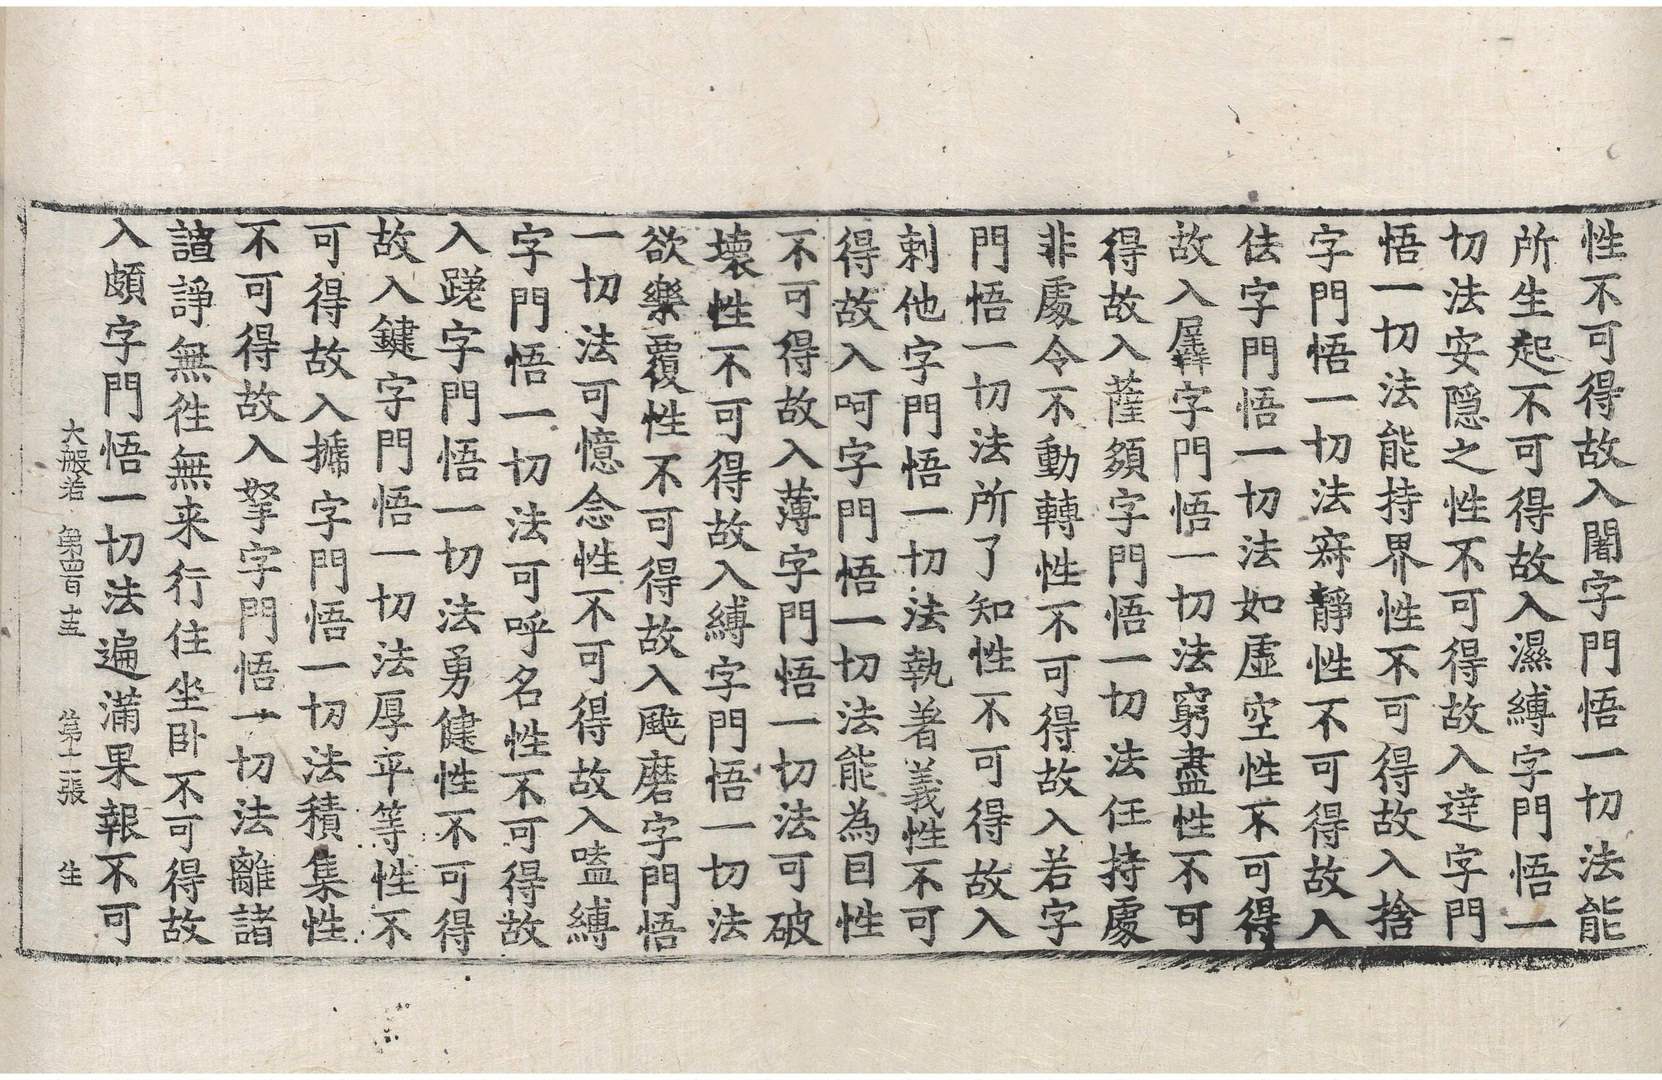 性不可得故入闍字門悟一切法能
所生起不可得故入濕縛字門悟一
切法安隱之性不可得故入達字門
悟一切法能持界性不可得故入捨
字門悟一切法寂靜性不可得故入
佉字門悟一切法如虛空性不可得
故入羼字門悟一切法窮盡性不可
得故入薩頞字門悟一切法任持處
非處令不動轉性不可得故入若字
門悟一切法所了知性不可得故入
剌他字門悟一切法執著義性不可
得故入呵字門悟一切法能為因性
不可得故入薄字門悟一切法可破
壞性不可得故入縛字門悟一切法
欲樂覆性不可得故入颯磨字門悟
一切法可憶念性不可得故入嗑縛
字門悟一切法可呼名性不可得故
入蹉字門悟一切法勇健性不可得
故入鍵字門悟一切法厚平等性不
可得故入搋字門悟一切法積集性
不可得故入拏字門悟一切法離諸
諠諍無徃無来行住坐卧不可得故
入頗字門悟一切法遍滿果報不可
大般若 第四百十五 第十二張 生